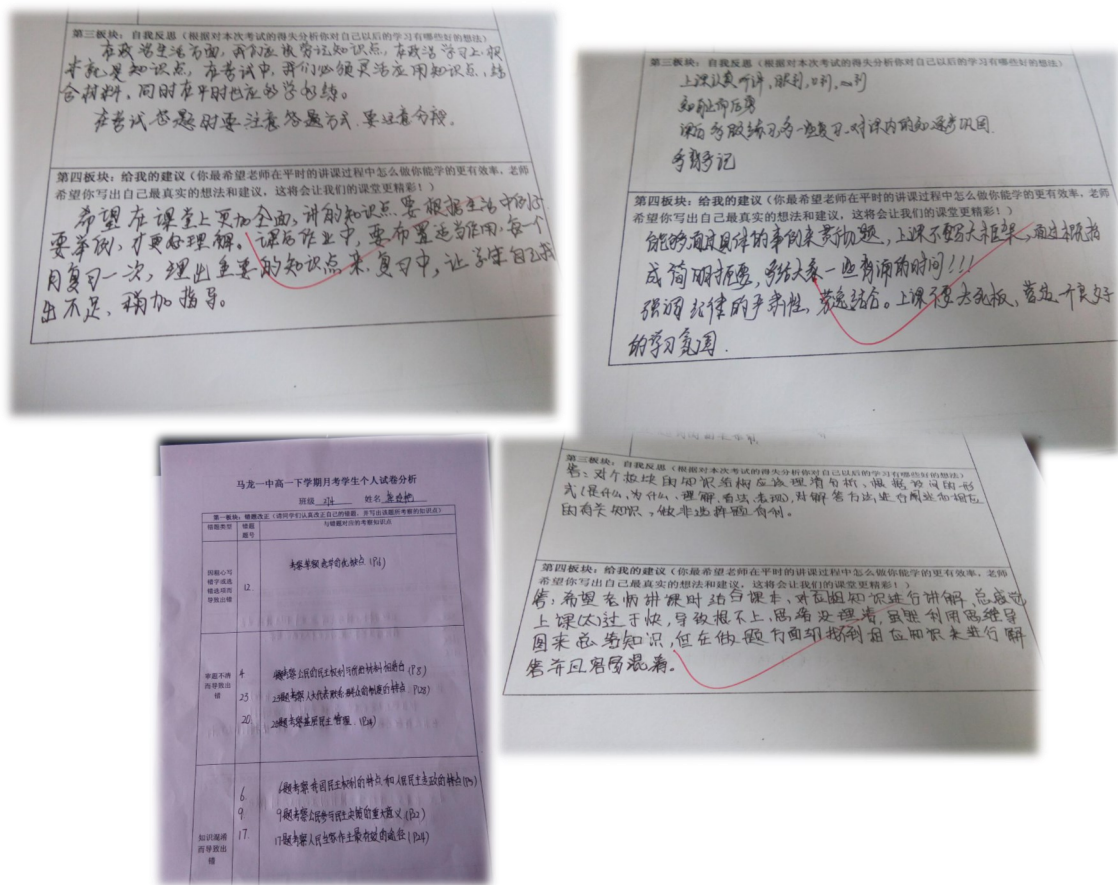 第三板块：自我反思（根据对本次考试的得失分析你对自己以后的学习有哪些好的想法）
在政治生活方面，我们应该劳记知识点，在政治学习上，根
本就是知识点，在考试中，我们必须灵活应用知识点，结
合材料，同时在平时也应多学多练。
在考试答题时要注意答题方式，要注意分段。
第四板块：给我的建议（你最希望老师在平时的讲课过程中怎么做你能学的更有效率，老师
希望你写出自己最真实的想法和建议，这将会让我们的课堂更精彩！）
希望在课堂上更加全面，讲的知识点要根据生活中的
要举例，才更好理解。课后作业中，要布置适当作用，每一个
月复习一次，理出重要的知识点来，复习中，让学生自己找
出不足，稍加指导。
第三板块：自我反思（根据对本次考试的得失分析你对自己以后的学习有哪些好的想法）
上课认真听讲，眼到，口到，心到
课后多做练习，多一些复习，对课内的知识
多记
第四板块：给我的建议（你最希望老师在平时的讲课过程中怎么做你能学的更有效率，老师
希望你写出自己最真实的想法和建议，这将会让我们的课堂更精彩！）
能够通过具体的事例来贯彻题，上课不要写大框架，
成简明扼要，多给大家一些背诵的时间！！！
强调纪律的严肃性，劳逸结合。上课不要太死板，营造一个良好
的学习氛围．
马龙一中高一下学期月考学生个人试卷分析
班级 姓名
第一板块：错题改正（请同学们认真改正自己的错题，并写出该题所考察的知识点）
错题类型 错题题号 与错题对应的考察知识点
因粗心写错字或选错选项而导致出错 12 考察等额选举的优缺点（P16）
审题不清而导致出错
4 考察公民的民主权利与
23 23题考察人大代表 的特点（P28）
20 20题考察基层民主管理
知识混淆而导致出错
6 6题考察我国民主权利的特点和人民民主专政的特点
9 9题考察公民参与民主决策的重大意义（P22）
17 17题考察人民当家作主最有效的途径（P24）
第三板块：自我反思（根据对本次考试的得失分析你对自己以后的学习有哪些好的想法）
答：对个板块的知识结构应该理清分析，根据 问的形
式（是什么，为什么，理解，看法，表现），对解答方法，进行 和相应
的有关知识，做非选择题有利。
第四板块：给我的建议（你最希望老师在平时的讲课过程中怎么做你能学的更有效率，老师
希望你写出自己最真实的想法和建议，这将会让我们的课堂更精彩！）
答，希望老师讲课时结合课本，对 知识进行讲解，总感觉
上课（火）过于快，导致根不上，思路没理清，虽要利用思维导
图来总结知识，但在做题方面却找到相应知识来进行解
答并且容易混淆。